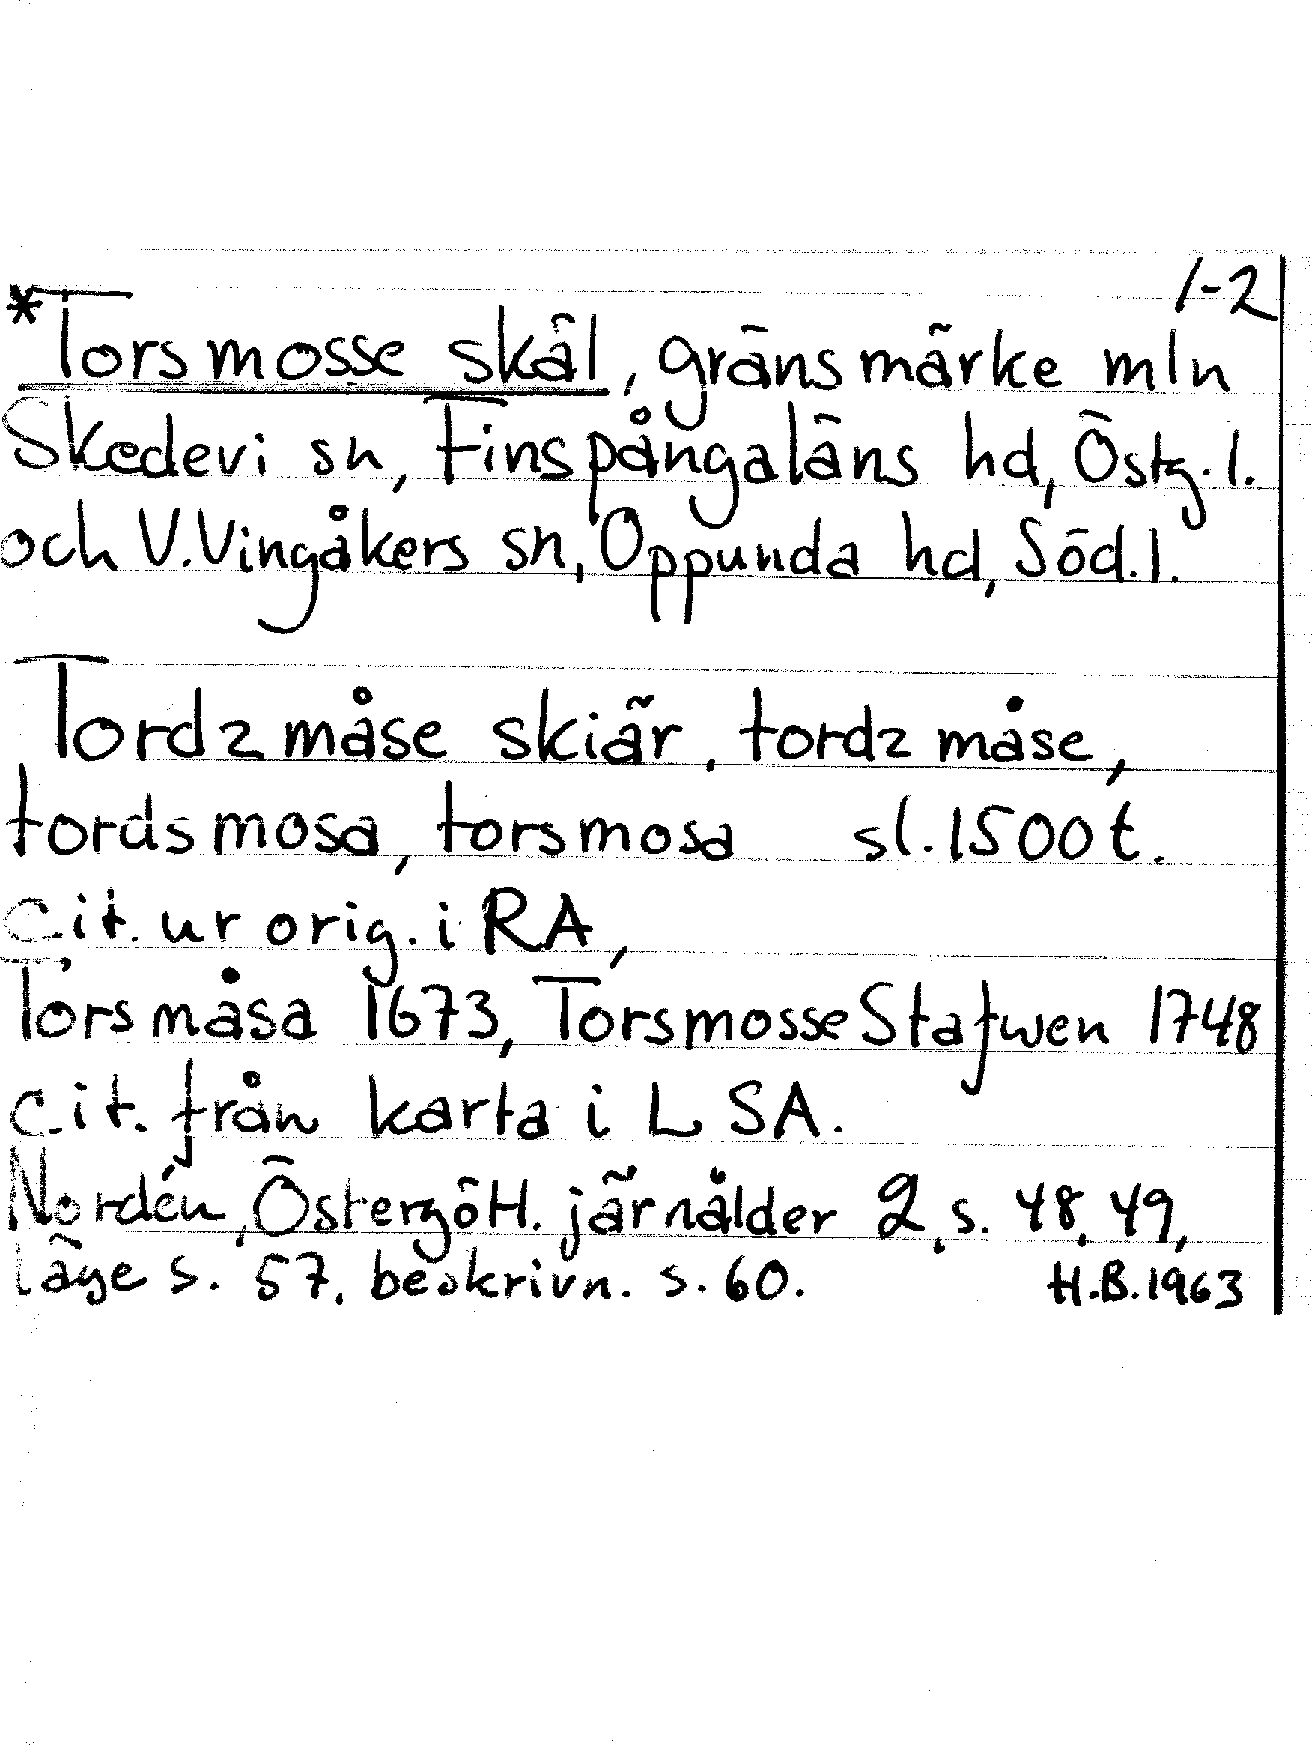 1-2
*Torsmosse skäl, gränsmärke mln
Skedevi sn, Finspångaläns hd, Östg.l.
och V.Vingåkers sn, Oppunda hd, Söd.l.
Tordz måse skiär, tordz måse,
tords mosa, torsmosa sl.1500t.
Cit. ur orig. i RA,
Torsmåsa 1673, Torsmosse Stafwen 1748
Cit. från karta i LSA.
Nordén, Östergötl. järnålder 2, s. 48, 49,
läge s. 57, beskrivn. s. 60. H.B.1963